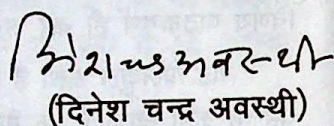 दिनेश चन्द्र अवस्थी
(दिनेश चन्द्र अवस्थी)